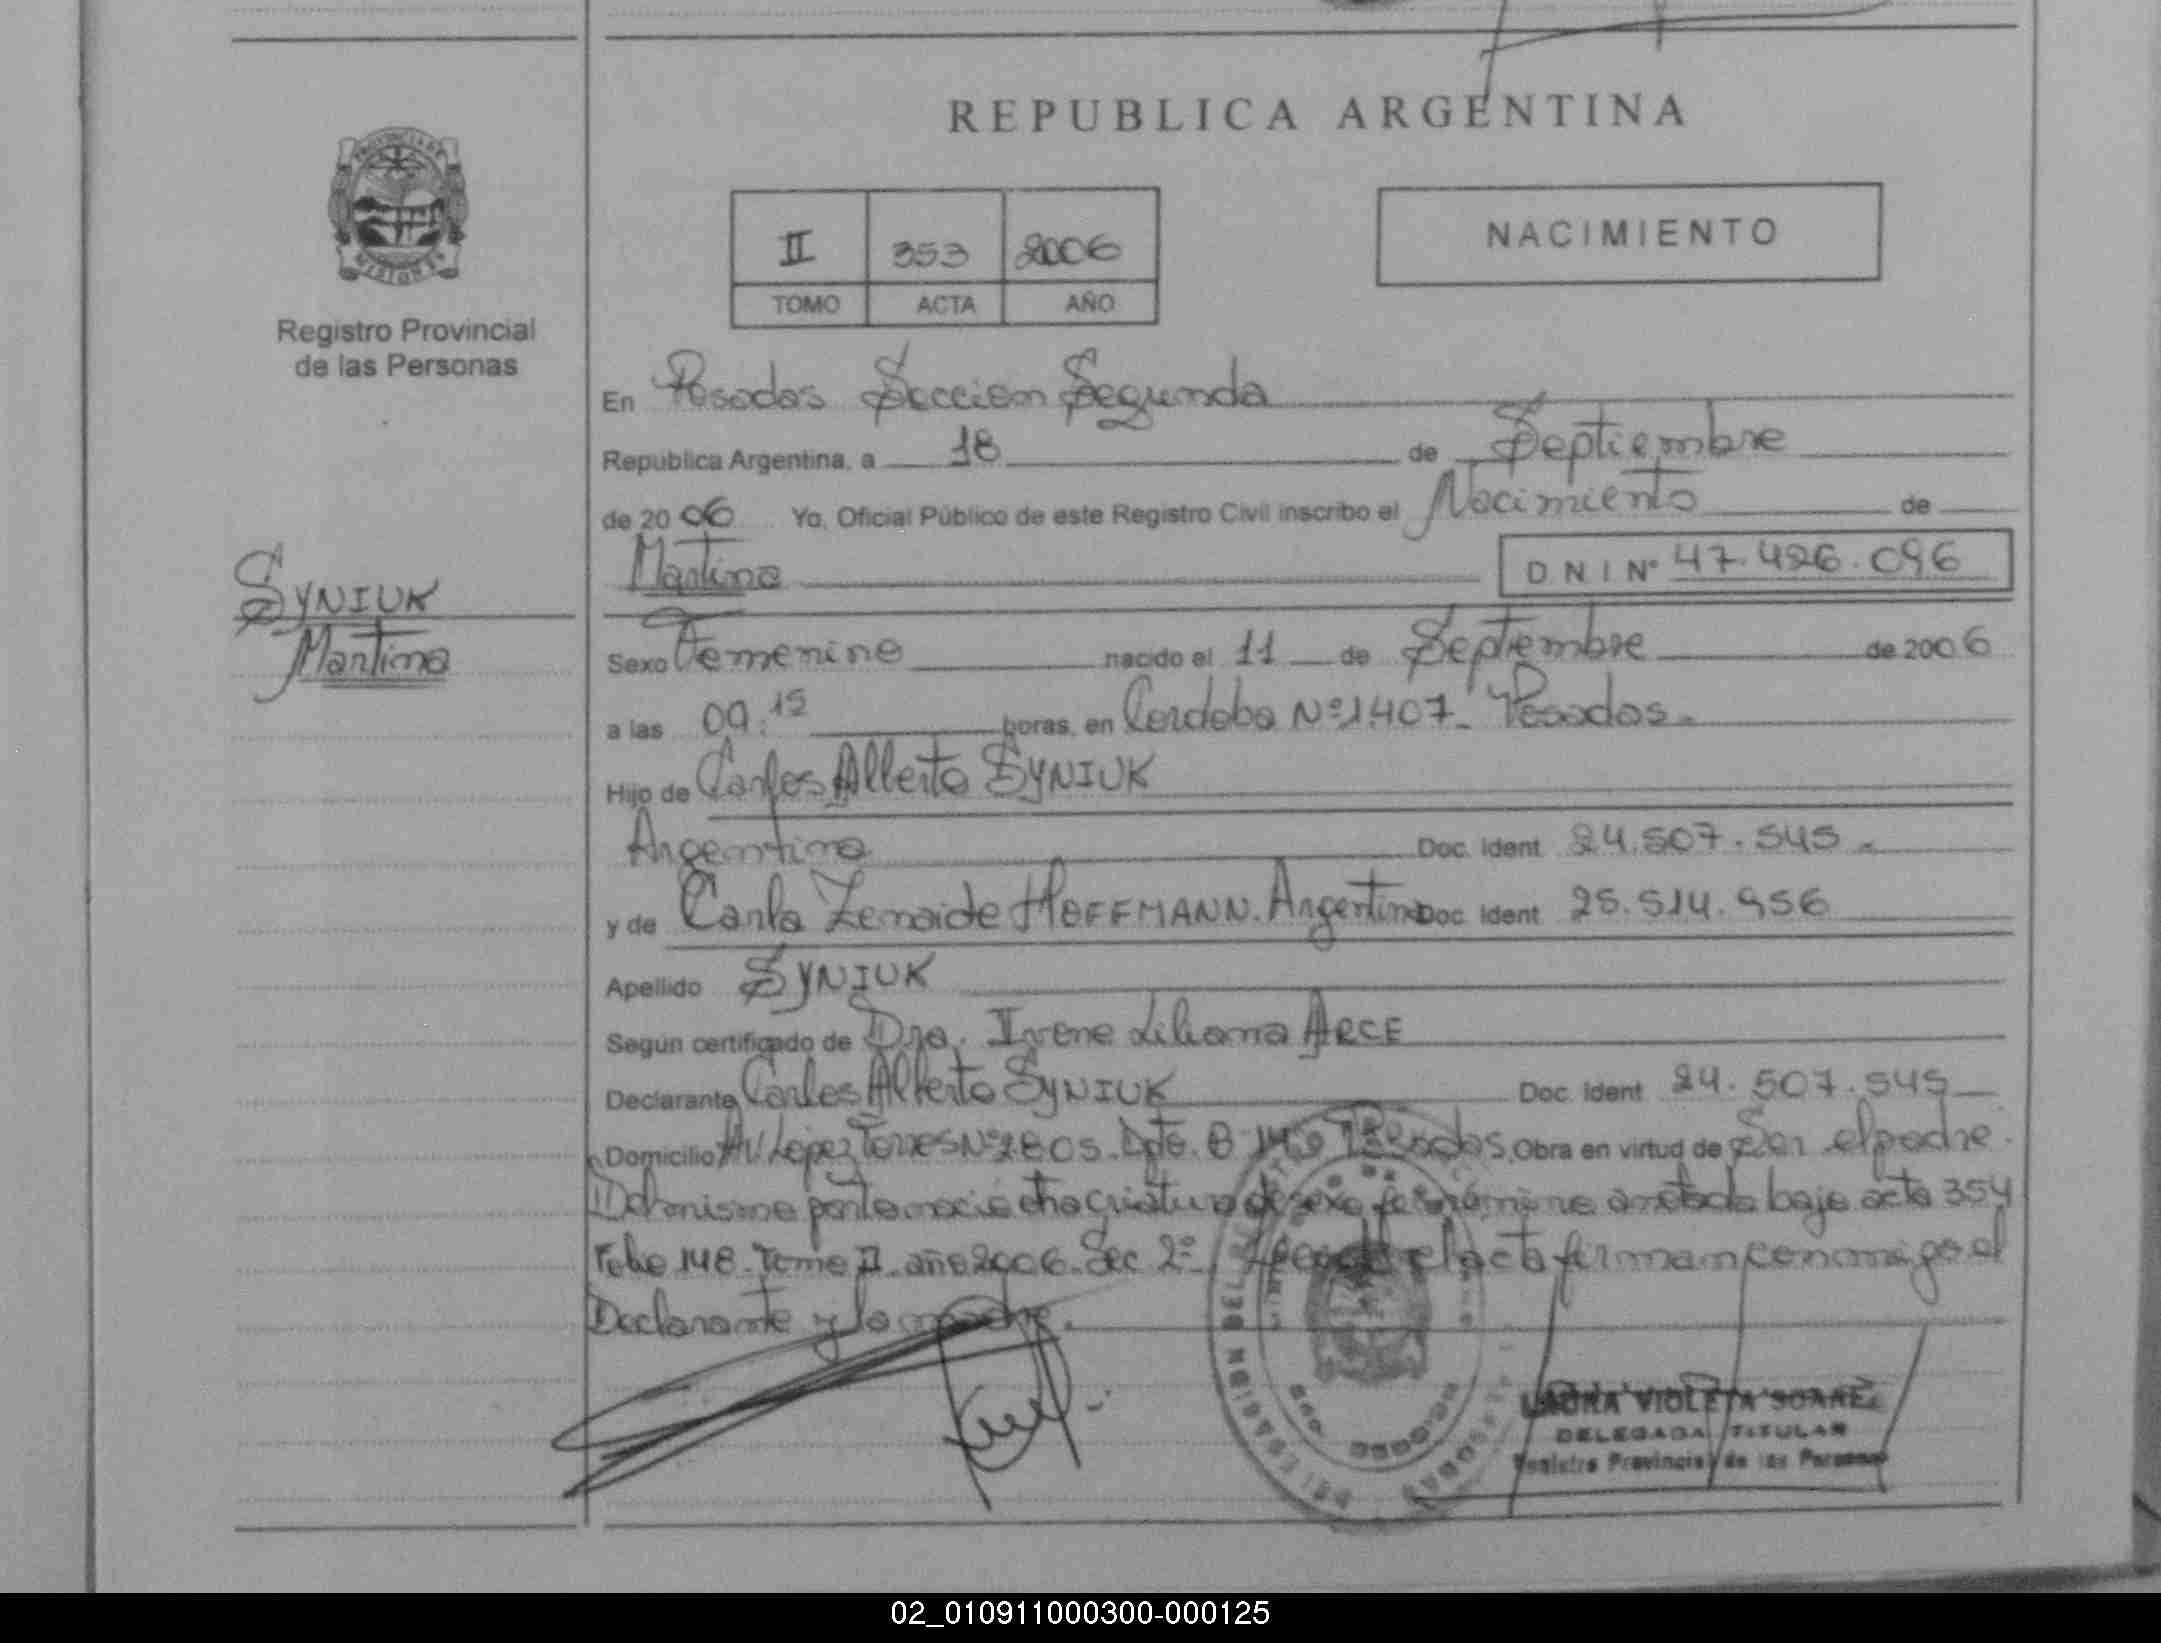 REPUBLICA ARGENTINA
PROVINCIA DE
MISIONES
Registro Provincial
de las Personas
II 353 2006
TOMO ACTA AÑO
NACIMIENTO
En Posadas Seccion Segunda
Republica Argentina, a 18 de Septiembre
de 2006 Yo, Oficial Público de este Registro Civil inscribo el Nacimiento de
Martina DNI Nº 47.426.096
SYNIUK
Martina
Sexo Femenino nacido el 11 de Septiembre de 2006
a las 09:15 horas, en Cordoba Nº 1.407 - Posadas.
Hijo de Carlos Alberto SYNIUK
Argentino Doc. Ident. 24.507.545.-
y de Carla Zenaide HOFFMANN. Argentina Doc. Ident. 25.514.956
Apellido SYNIUK
Según certificado de Dra. Irene Liliana ARCE
Declarante Carlos Alberto SYNIUK Doc. Ident. 24.507.545
Domicilio Av. Lopez Torres Nº 2805. Dpto. 8 Posadas. Obra en virtud de Ser el padre.
Del mismo parto nació otra criatura de sexo femenino anotada bajo acta 354
Folio 148. Tomo II. año 2006. Sec. 2º el acta firman conmigo el
Declarante y la madre.
DELEGACION DEL
LAURA VIOLETA SUAREZ
DELEGADA TITULAR
Registro Provincial de las Personas
02_010911000300-000125